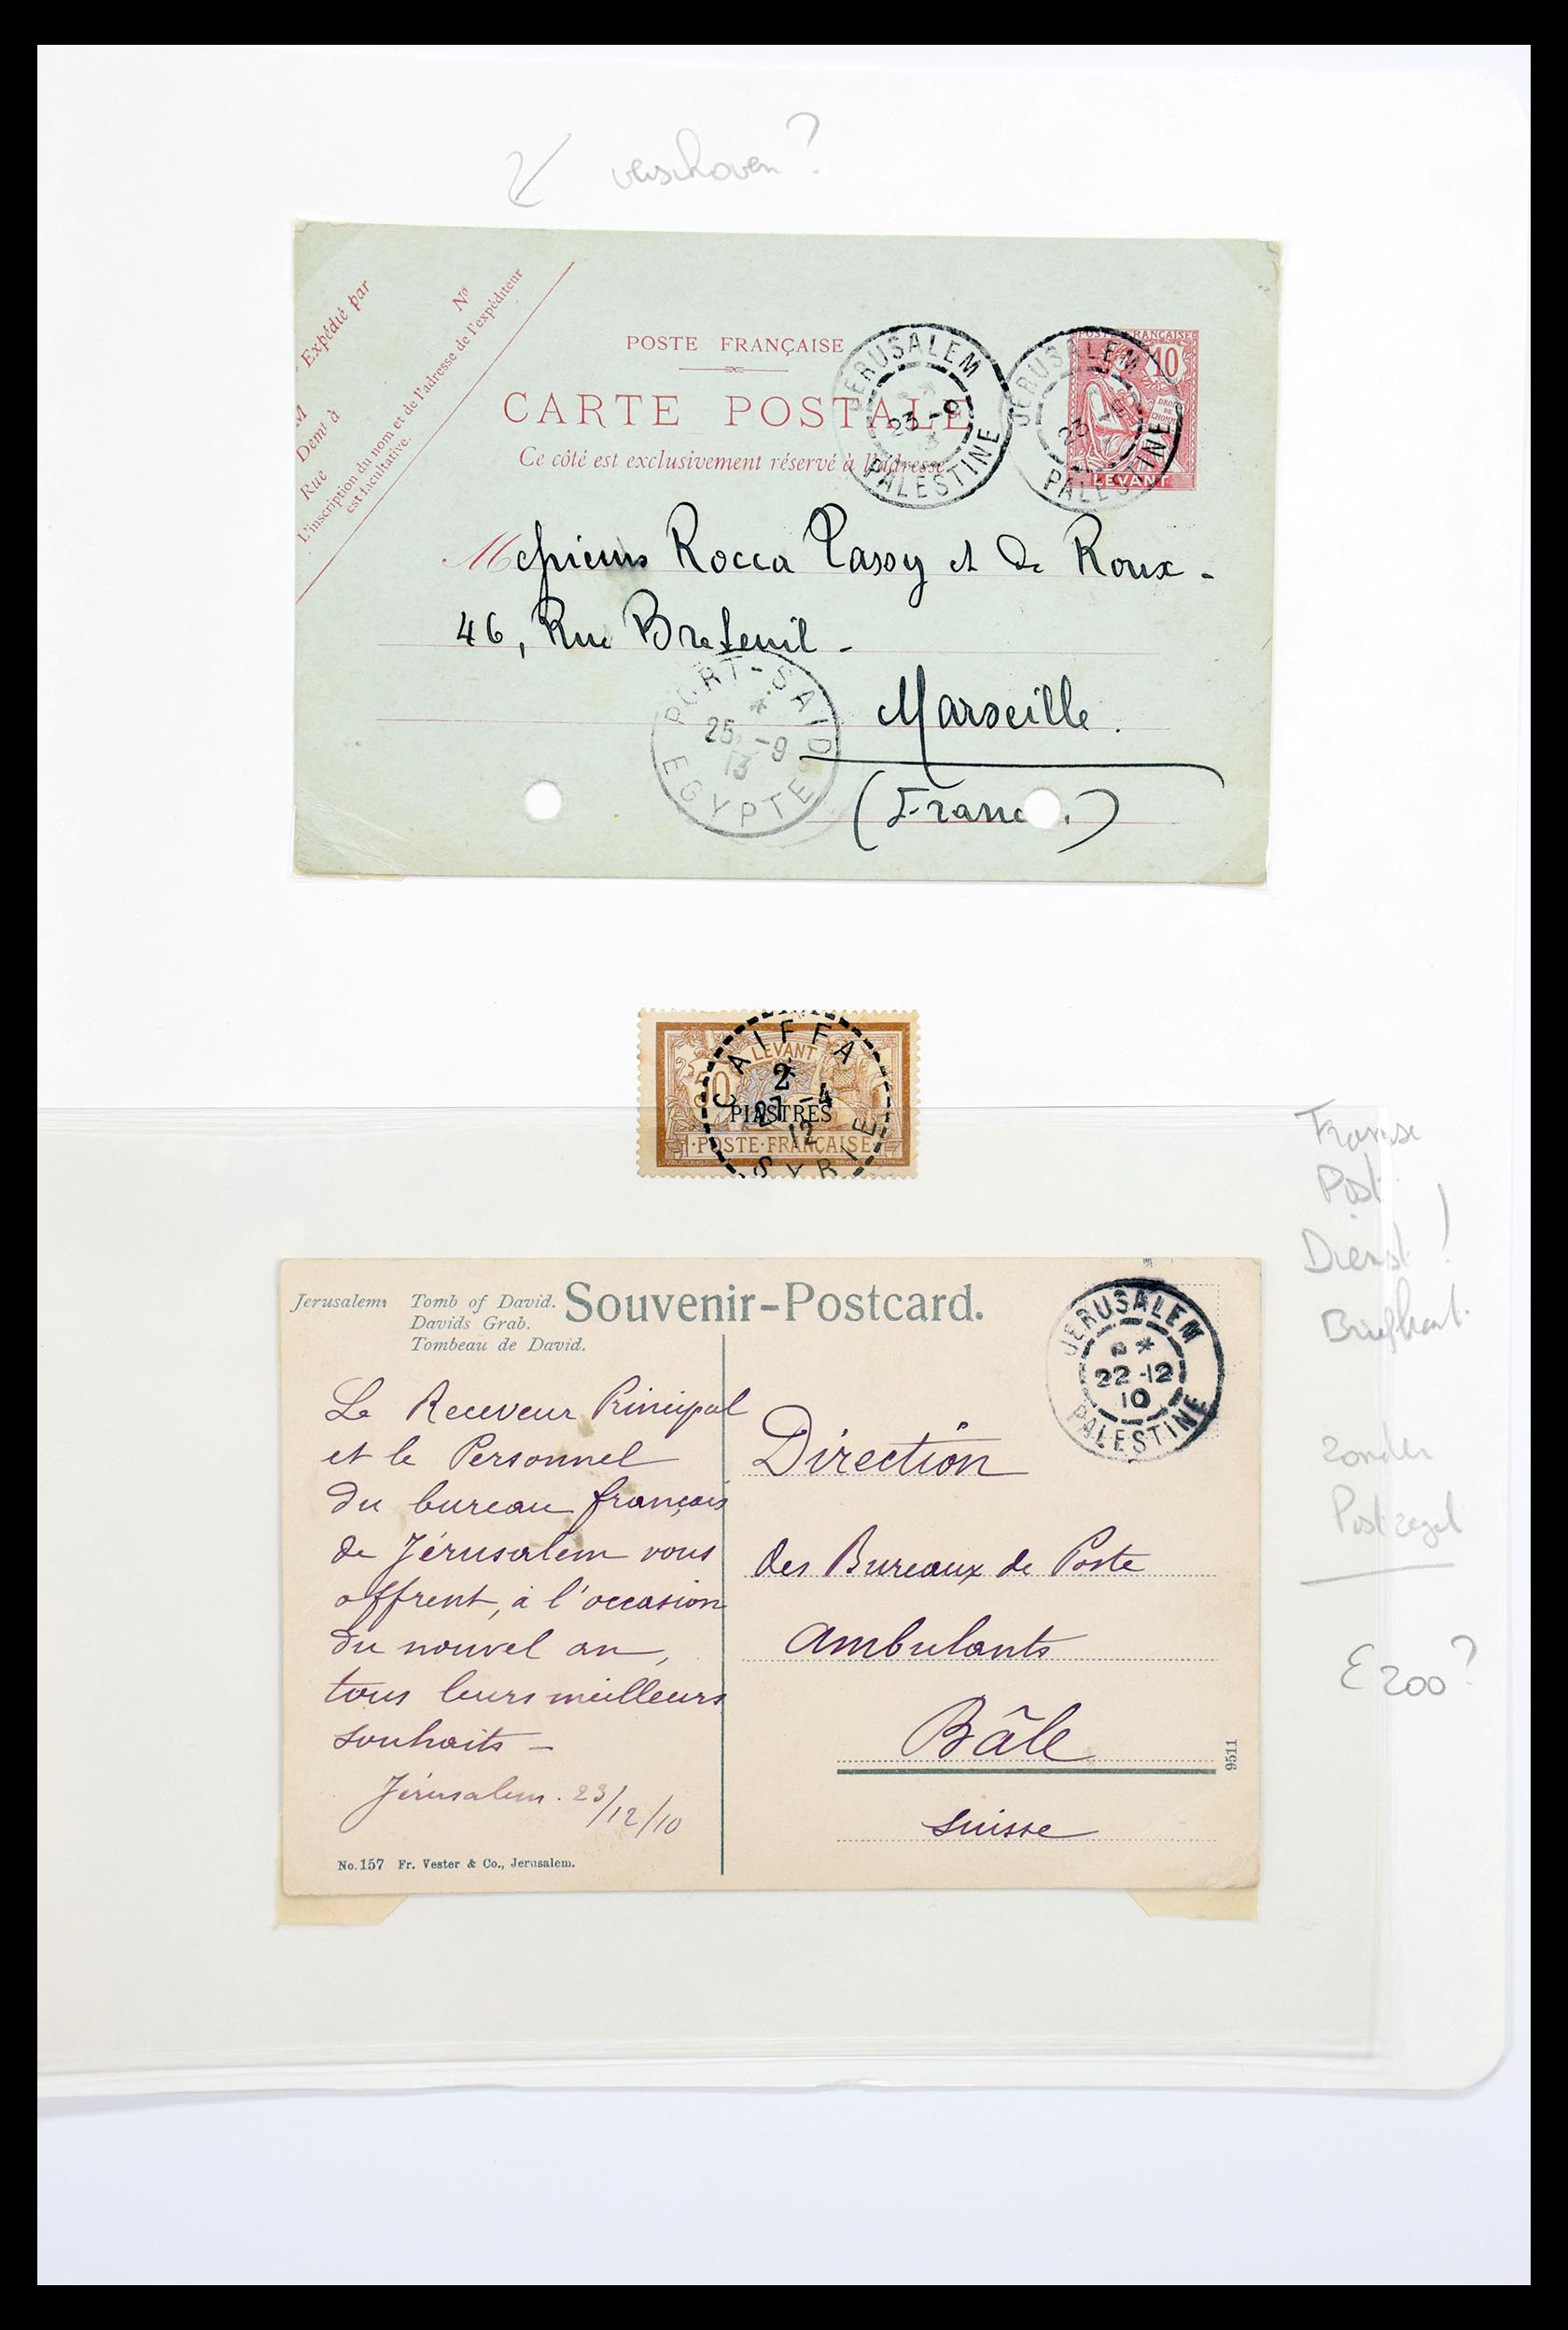 verschoven?
Expédié par
Nº
M
Demt à
Rue
L'inscription du nom et de l'adresse de l'expéditeur
est facultative.
POSTE FRANÇAISE
CARTE POSTALE
Ce côté est exclusivement réservé à l'adresse.
JERUSALEM
23 -9
13
PALESTINE
JERUSALEM
23
PALESTINE
POSTE FRANÇAISE
10
DROITS
DE
L'HOMME
LEVANT
Messieurs Rocca Tassy et de Roux -
46, Rue Breteuil -
Marseille.
(Franc .)
PORT-SAID
25 -9
13
EGYPTE
CAIFFA
LEVANT
50
2
PIASTRES
27 -4
12
POSTE FRANÇAISE
SYRIE
Franse
Post
Dienst!
Briefkaart.
zonder
Postzegel
€ 200?
Jerusalem: Tomb of David.
Davids Grab.
Tombeau de David.
Souvenir-Postcard.
JERUSALEM
22 -12
10
PALESTINE
Le Receveur Principal
et le Personnel
du bureau français
de Jérusalem vous
offrent, à l'occasion
du nouvel an,
tous leurs meilleurs
souhaits -
Jérusalem. 23/12/10
No. 157 Fr. Vester & Co., Jerusalem.
Direction
des Bureaux de Poste
Ambulants
Bâle
Suisse
9511